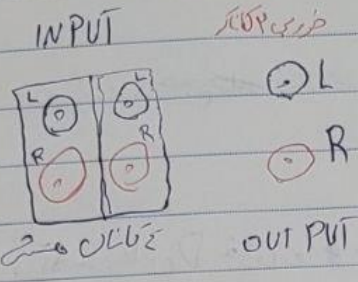 INPUT
خروجی ۲ کانال
L L
R R
L
R
۴ کانال
OUT PUT